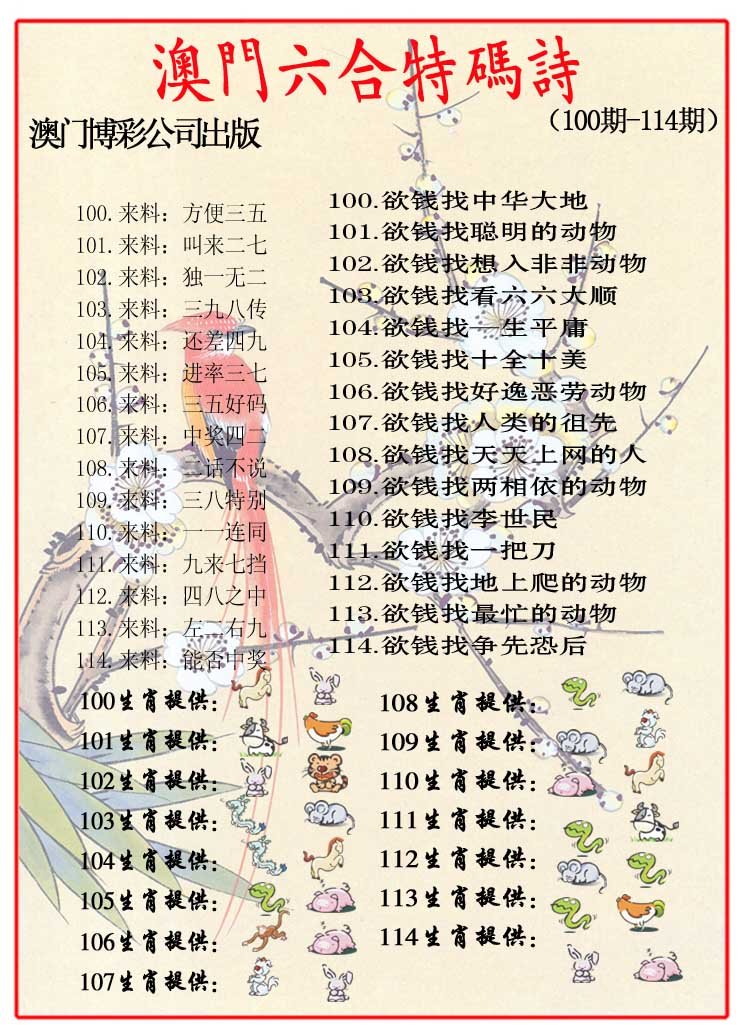 澳門六合特碼詩
澳门博彩公司出版
（100期-114期）
100.来料：方便三五
101.来料：叫来二七
102.来料：独一无二
103.来料：三九八传
104.来料：还差四九
105.来料：进率三七
106.来料：三五好码
107.来料：中奖四二
108.来料：二话不说
109.来料：三八特别
110.来料：一一连同
111.来料：九来七挡
112.来料：四八之中
113.来料：左一右九
114.来料：能否中奖
100.欲钱找中华大地
101.欲钱找聪明的动物
102.欲钱找想入非非动物
103.欲钱找看六六大顺
104.欲钱找一生平庸
105.欲钱找十全十美
106.欲钱找好逸恶劳动物
107.欲钱找人类的祖先
108.欲钱找天天上网的人
109.欲钱找两相依的动物
110.欲钱找李世民
111.欲钱找一把刀
112.欲钱找地上爬的动物
113.欲钱找最忙的动物
114.欲钱找争先恐后
100生肖提供：
101生肖提供：
102生肖提供：
103生肖提供：
104生肖提供：
105生肖提供：
106生肖提供：
107生肖提供：
108生肖提供：
109生肖提供：
110生肖提供：
111生肖提供：
112生肖提供：
113生肖提供：
114生肖提供：